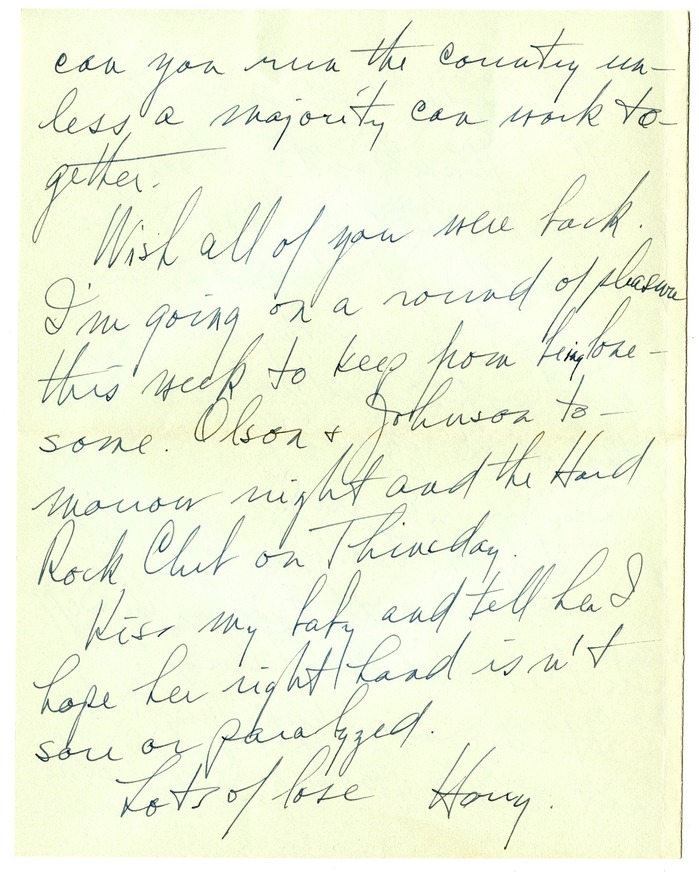 can you run the country un-
less a majority can work to-
gether.
Wish all of you were back.
I'm going on a round of pleasure
this week to keep from being lone-
some. Olson & Johnson to-
morrow night and the Hard
Rock Club on Thursday.
Kiss my baby and tell her I
hope her right hand isn't
sore or paralyzed.
Lots of love Harry.